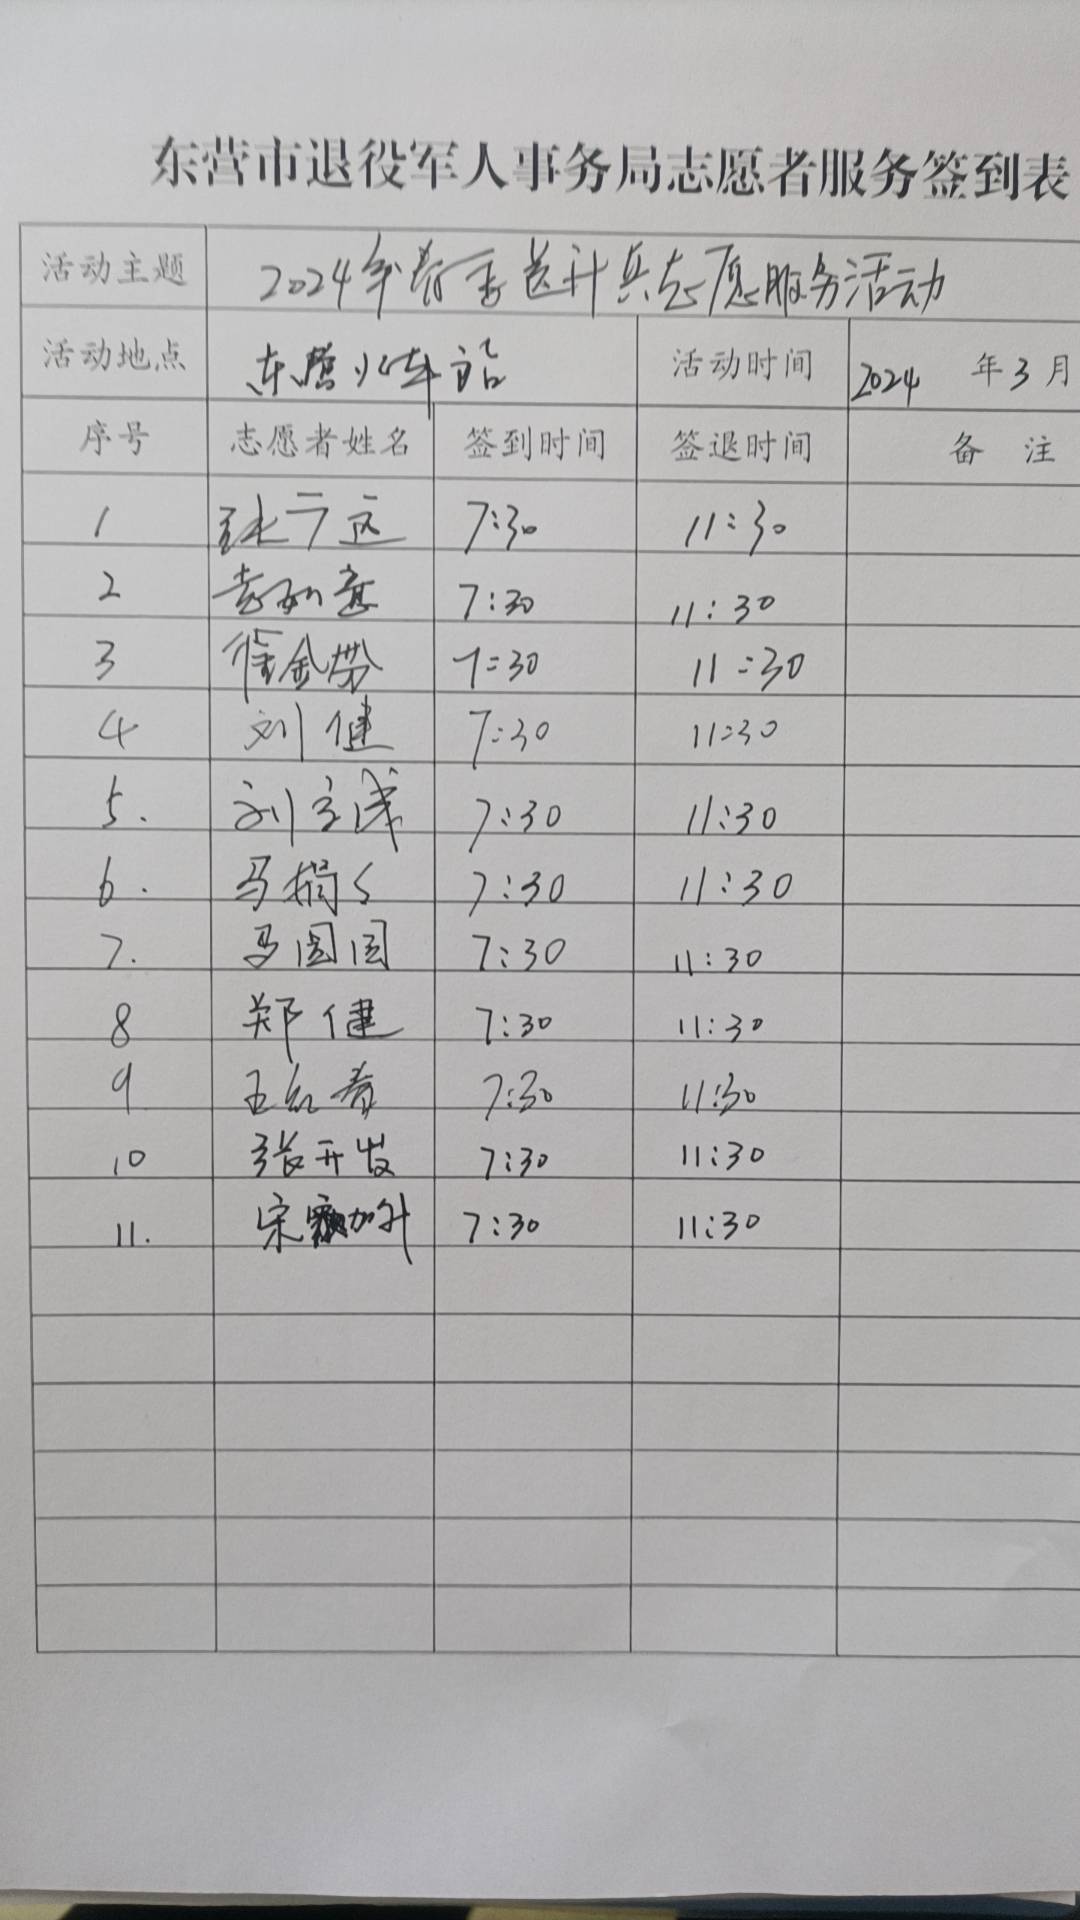 东营市退役军人事务局志愿者服务签到表
活动主题 2024年春季送新兵志愿服务活动
活动地点 东营火车站 活动时间 2024 年3月
序号 志愿者姓名 签到时间 签退时间 备 注
1 7:30 11:30
2 7:30 11:30
3 7:30 11:30
4 刘健 7:30 11:30
5. 刘 7:30 11:30
6. 马 7:30 11:30
7. 马圆圆 7:30 11:30
8 郑健 7:30 11:30
9 王红春 7:30 11:30
10 张开发 7:30 11:30
11. 宋加升 7:30 11:30